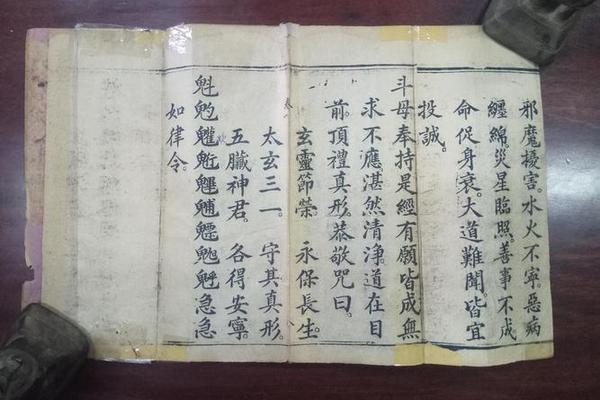 邪魔擾害。水火不寧。惡病
纏綿。災星臨照。善事不成
命促身衰。大道難聞。皆宜
投誠。
斗母奉持是經有願皆成無
求不應湛然清淨。道在目
前。頂禮真形。恭敬咒曰。
玄靈節榮。永保長生。
太玄三一。守其真形。
五臟神君。各得安寧。
魁急急
如律令。